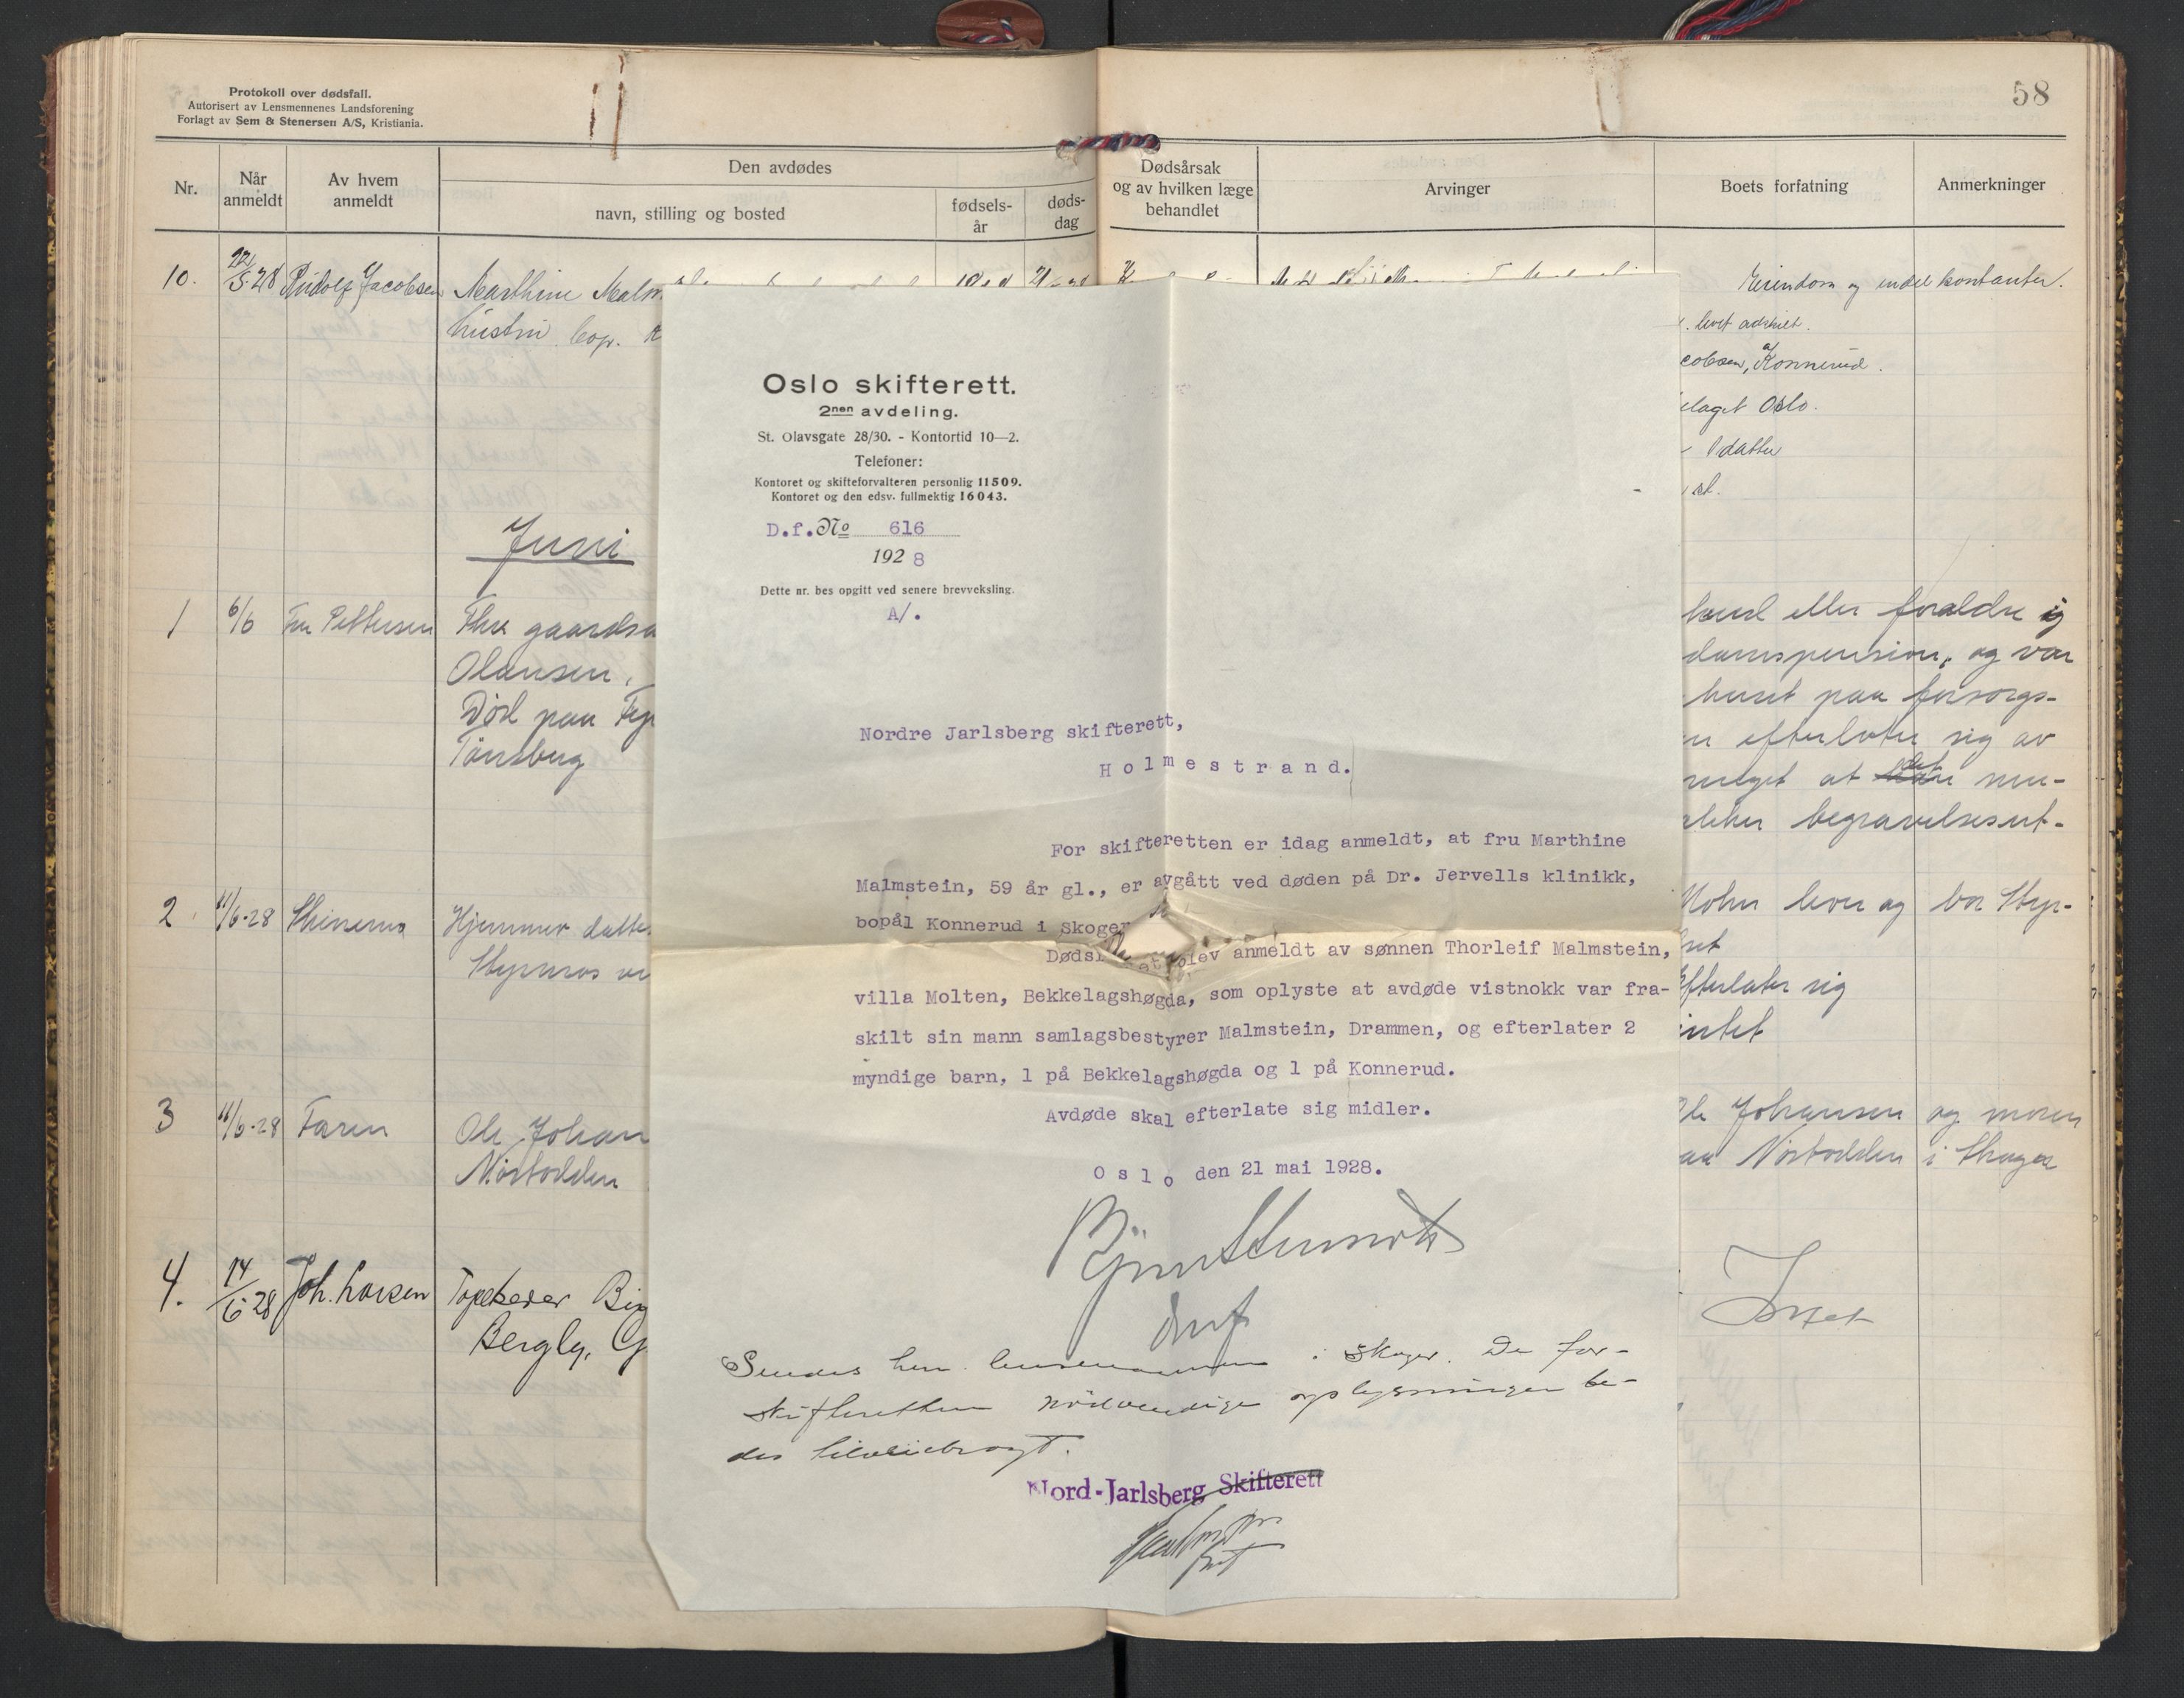 Protokoll over dødsfall.
Autorisert av Lensmennenes Landsforening
Forlagt av Sem & Stenersen A/S, Kristiania.
58
Nr.
Når anmeldt
Av hvem anmeldt
Den avdødes
navn, stilling og bosted
fødsels-år
døds-dag
Dødsårsak og av hvilken læge behandlet
Arvinger
Boets forfatning
Anmerkninger
10. 22/5.28 Rudolf Jacobsen Marthine Malm
hustru
Eiendom og endel kontanter.
levet adskilt.
cobsen, Konnerud.
elaget Oslo.
1 datter
Juni
1 6/6 Fru Pettersen Fhv. gaards
Olausen,
Död paa
Tönsberg
eller foraldre
damspension, og var
huset paa forsorgs-
efterlater sig av
meget at det
begravelsesut-
2 11/6-28 Hjemmev. datte
lever og bor Styr-
Efterlater sig
intet
3 11/6-28 Faren Ole Johan
Nöstodden
Johansen og moren
Nöstodden i Skoger
4. 14/6 28 Joh. Larsen Tapetserer
Bergly,
Intet
Oslo skifterett.
2nen avdeling.
St. Olavsgate 28/30. - Kontortid 10—2.
Telefoner:
Kontoret og skifteforvalteren personlig 11509.
Kontoret og den edsv. fullmektig 16043.
D.f. No 616
1928
Dette nr. bes opgitt ved senere brevveksling.
A/.
Nordre Jarlsberg skifterett,
Holmestrand.
For skifteretten er idag anmeldt, at fru Marthine
Malmstein, 59 år gl., er avgått ved døden på Dr. Jervells klinikk,
bopål Konnerud i Skoger
Døds et blev anmeldt av sønnen Thorleif Malmstein,
villa Molten, Bekkelagshøgda, som oplyste at avdøde vistnokk var fra-
skilt sin mann samlagsbestyrer Malmstein, Drammen, og efterlater 2
myndige barn, 1 på Bekkelagshøgda og 1 på Konnerud.
Avdøde skal efterlate sig midler.
Oslo den 21 mai 1928.
Sendes herr lensmannen i Skoger. De for
skifteretten nödvendige oplysninger be-
des tilveiebragt.
Nord-Jarlsberg Skifterett